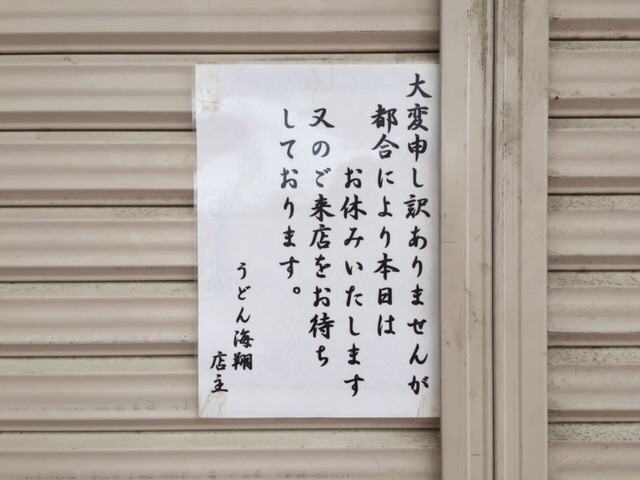 大変申し訳ありませんが
都合により本日は
お休みいたします
又のご来店をお待ち
しております。
うどん海翔
店主